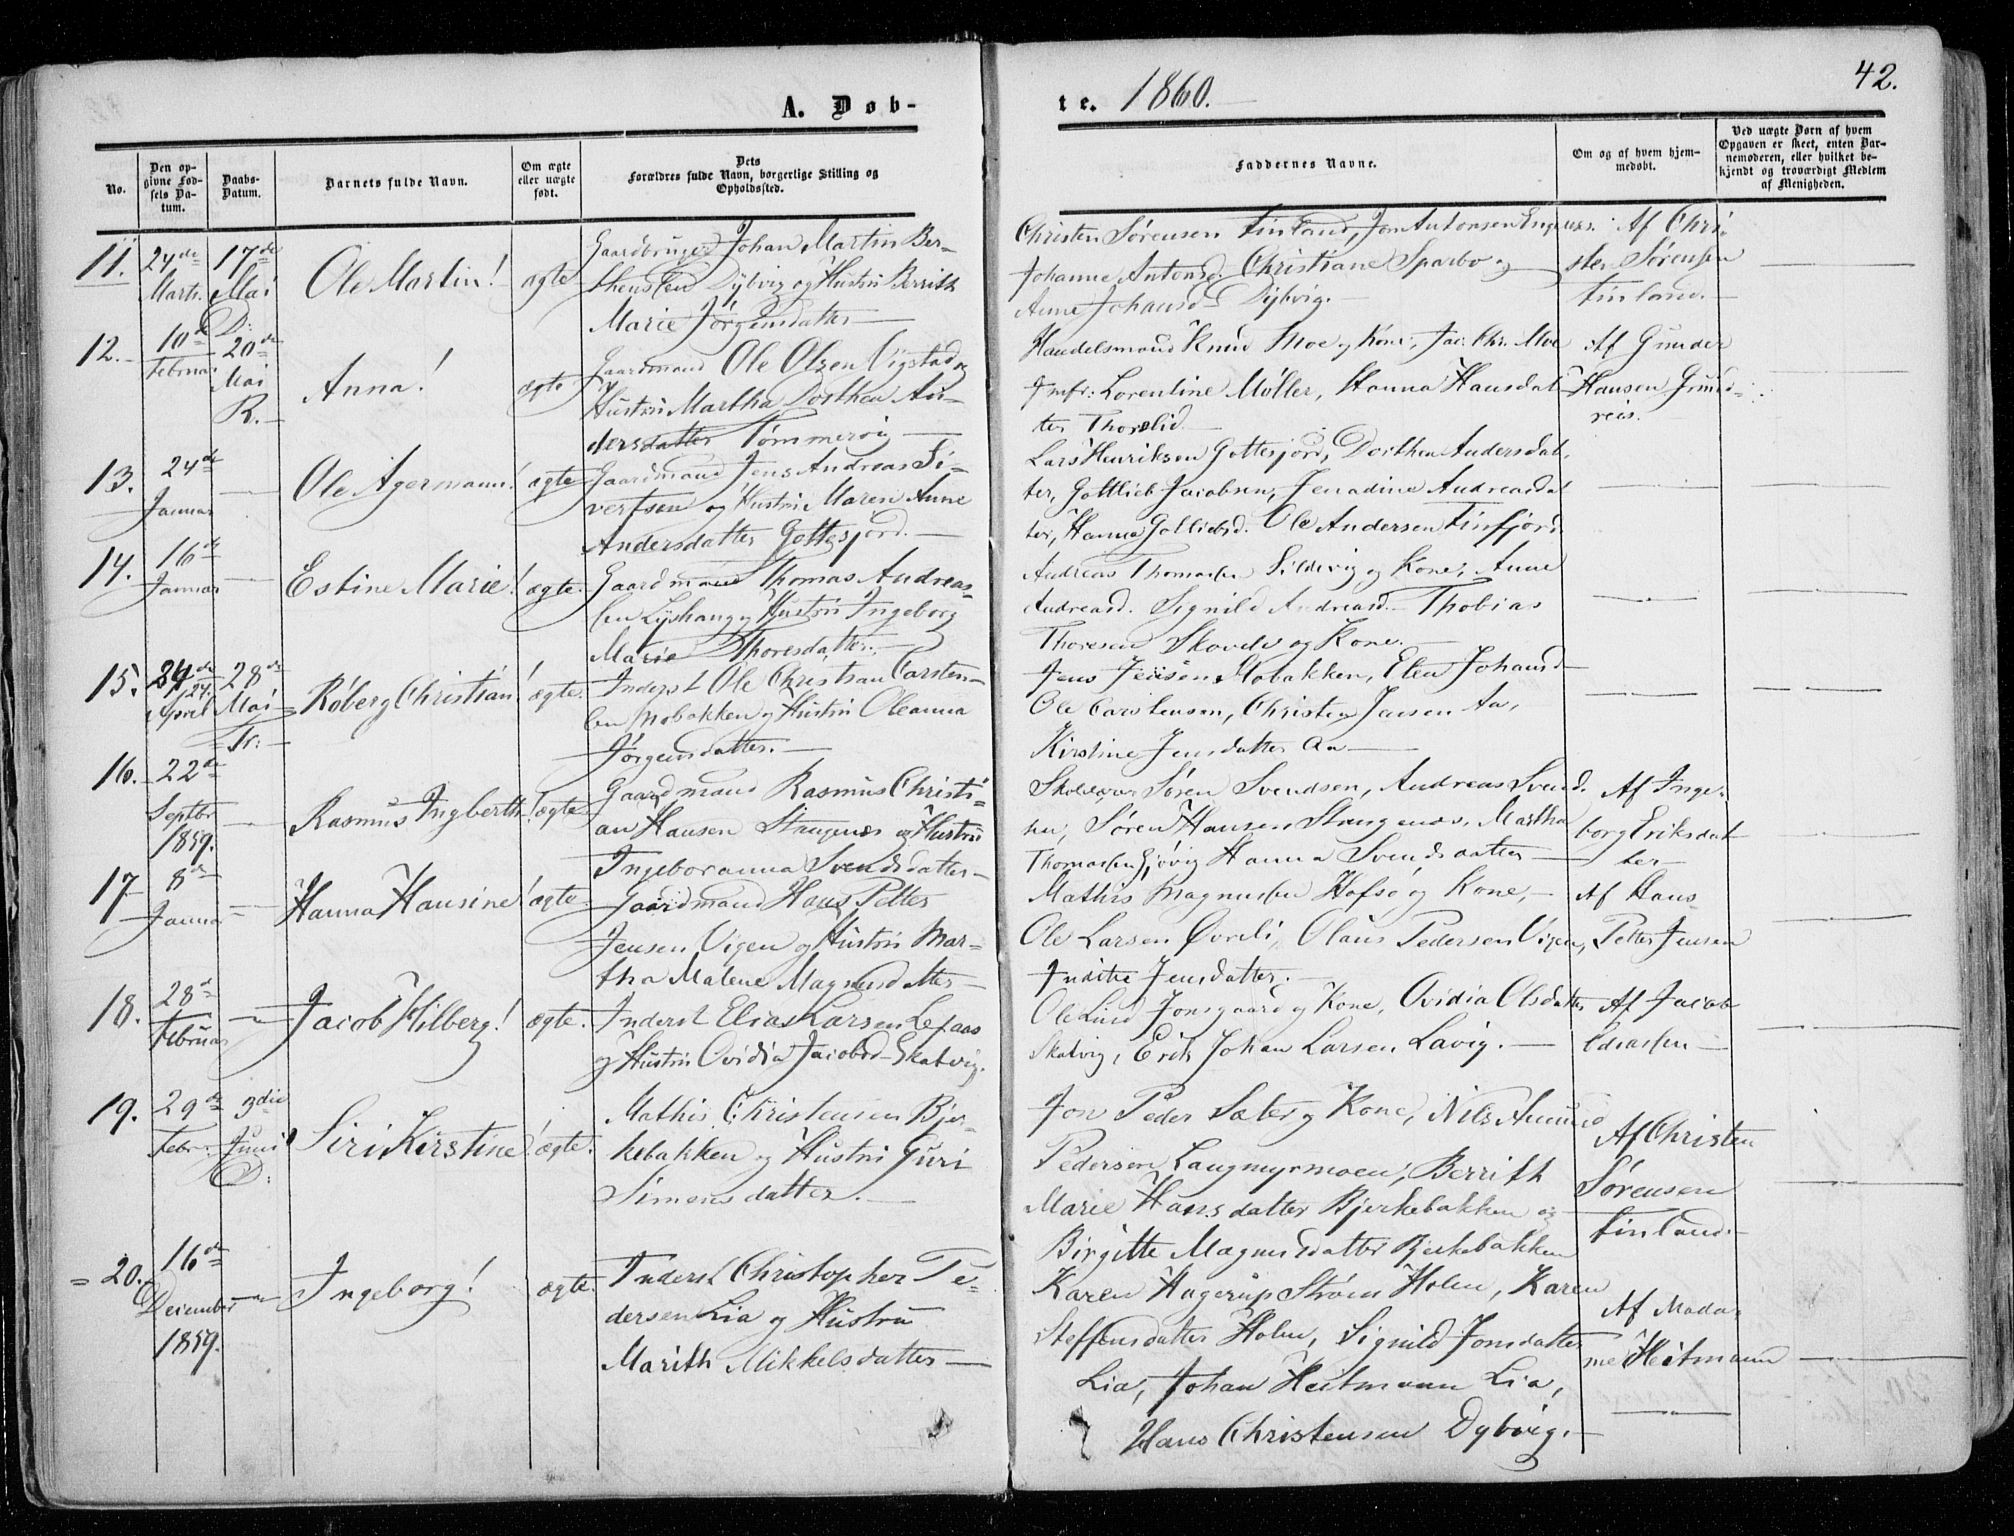 A. Døb-
te. 1860.
42.
No.
Den opgivne Fødsels Datum.
Daabs-Datum.
Barnets fulde Navn.
Om ægte eller uægte født.
Dets Forældres fulde Navn, borgerlige Stilling og Opholdssted.
Faddernes Navne.
Om og af hvem hjemmedøbt.
Ved uægte Børn af hvem Opgaven er skeet, enten Barnemoderen, eller hvilket bekjendt og troværdigt Medlem af Menigheden.
11. 24de Marts. 17de Mai D: Ole Martin! ægte
Gaardbruger Johan Martin Ber-
thensen Dybvig og Hustru Berrith
Marie Jørgensdatter —
Christen Sørensen Finland, Jon Antonsen
Johanne Antonsd. Christiane Sparbo og
Anne Johansd Dybvig. —
Af Chri-
sten Sørensen
Finland. —
12. 10de Februar 20de Mai R. — Anna! ægte
Gaardmand Ole Olsen Vigstad og
Hustru Martha Dorthea An-
dersdatter Tømmervig —
Handelsmand Knud Moe og Kone, Jac. Chr. Moe
Jmfr: Lorentine Møller, Hanna Hansdat-
ter Thorelid —
Af Gunder
Hansen Grund-
reis.
13. 24de Januar — Ole Agermann! ægte
Gaardmand Jens Andreas Si-
vertsen og Hustru Maren Anne
Andersdatter Gottesjord. —
Lars Henriksen Gottesjord, Dorthea Andersdat-
ter, Gottlieb Jacobsen, Jenadine Andreasdat
ter, Hanna Gottliebsd. Ole Andersen Finfjord
14. 16de Januar — Estine Marie! ægte.
Gaardmand Thomas Andreas-
sen Lyshaug og Hustru Ingeborg
Marie Thoresdatter. —
Andreas Thomassen Sildvig og Kone, Anne
Andreasd. Signild Andreasd. Thobias
Thoresen Skovli og Kone. —
15. 24de 27. April 28de Mai Tr: — Røberg Christian! ægte.
Inderst Ole Christian Carsten-
sen Mobakken og Hustru Oleanna
Jørgensdatter. —
Jens Jensen Mobakken, Elen Johansd
Ole Carstensen, Christen Jensen Aa,
Kirstine Jensdatter Aa —
16. 22de Septbr 1859. — Rasmus Ingberth! ægte
Gaardmand Rasmus Christi-
an Hansen Stangnæs og Hustru
Ingeboranna Svendsdatter —
Søren Svendsen, Andreas Svend-
sen, Søren Hansen Stangenæs, Martha
Thomassen Gjøvig Hanna Svendsdatter —
Af Inge-
borg Eriksdat
ter —
17 8de Januar — Hanna Hansine! ægte
Gaardmand Hans Petter
Jensen Vigen og Hustru Mar-
tha Malene Magnusdatter —
Mathis Magnussen Hofsø og Kone, —
Ole Larsen Øvrdli, Olaus Pedersen Vigen,
Judithe Jensdatter.
Af Hans
Petter Jensen
18. 28de Februar — Jacob Hilberg! ægte.
Inderst Elias Larsen Lefaas
og Hustru Ovidia Jacobsd Skatvig.
Ole Lund Jonsgaard og Kone, Ovidia Olsdatter
Skatvig, Erik Johan Larsen Lavig. —
Af Jacob
Eliassen —
19. 29de Febr: 3die Juni D: Siri Kirstine! ægte.
Mathis Christensen Bjer-
kebakken og Hustru Guri
Simonsdatter. —
Jon Peder Sæter og Kone, Nils Amund
Pedersen Langmyrmoen, Berrith
Marie Hansdatter Bjerkebakken og
Birgitte Magnusdatter Bjerkebakken
Af Christen
Sørensen
Finland. —
20. 16de December 1859. — Ingeborg! ægte.
Inderst Christopher Pe-
dersen Lia og Hustru
Marith Mikkelsdatter —
Karen Hagerup Strøm Holm, Karen
Steffensdatter Holm, Signild Jonsdatter
Lia, Johan Heitmann Lia,
Hans Christensen Dybvig. —
Af Mada-
me Heitmann